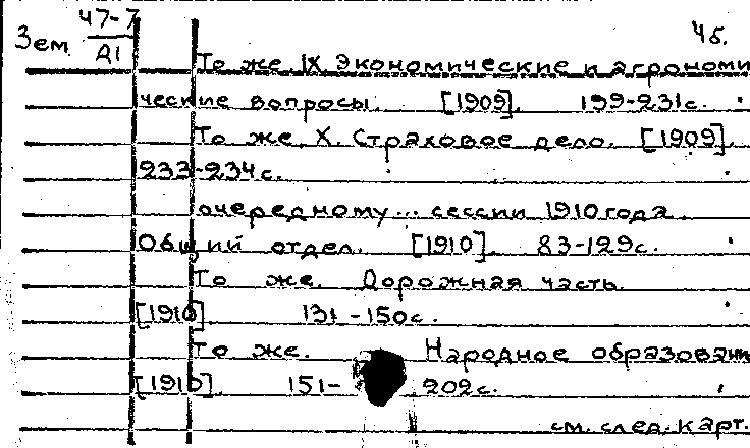 Зем. 47-7 45.
А1
То же. IX Экономические и агрономи
ческие вопросы. [1909]. 199-231с.
То же. X. Страховое дело. [1909].
233-234с.
очередному... сессии 1910 года.
Общий отдел. [1910]. 83-129с.
То же. Дорожная часть.
[1910]. 131-150с.
То же. Народное образован
[1910]. 151-202с.
см. след. карт.